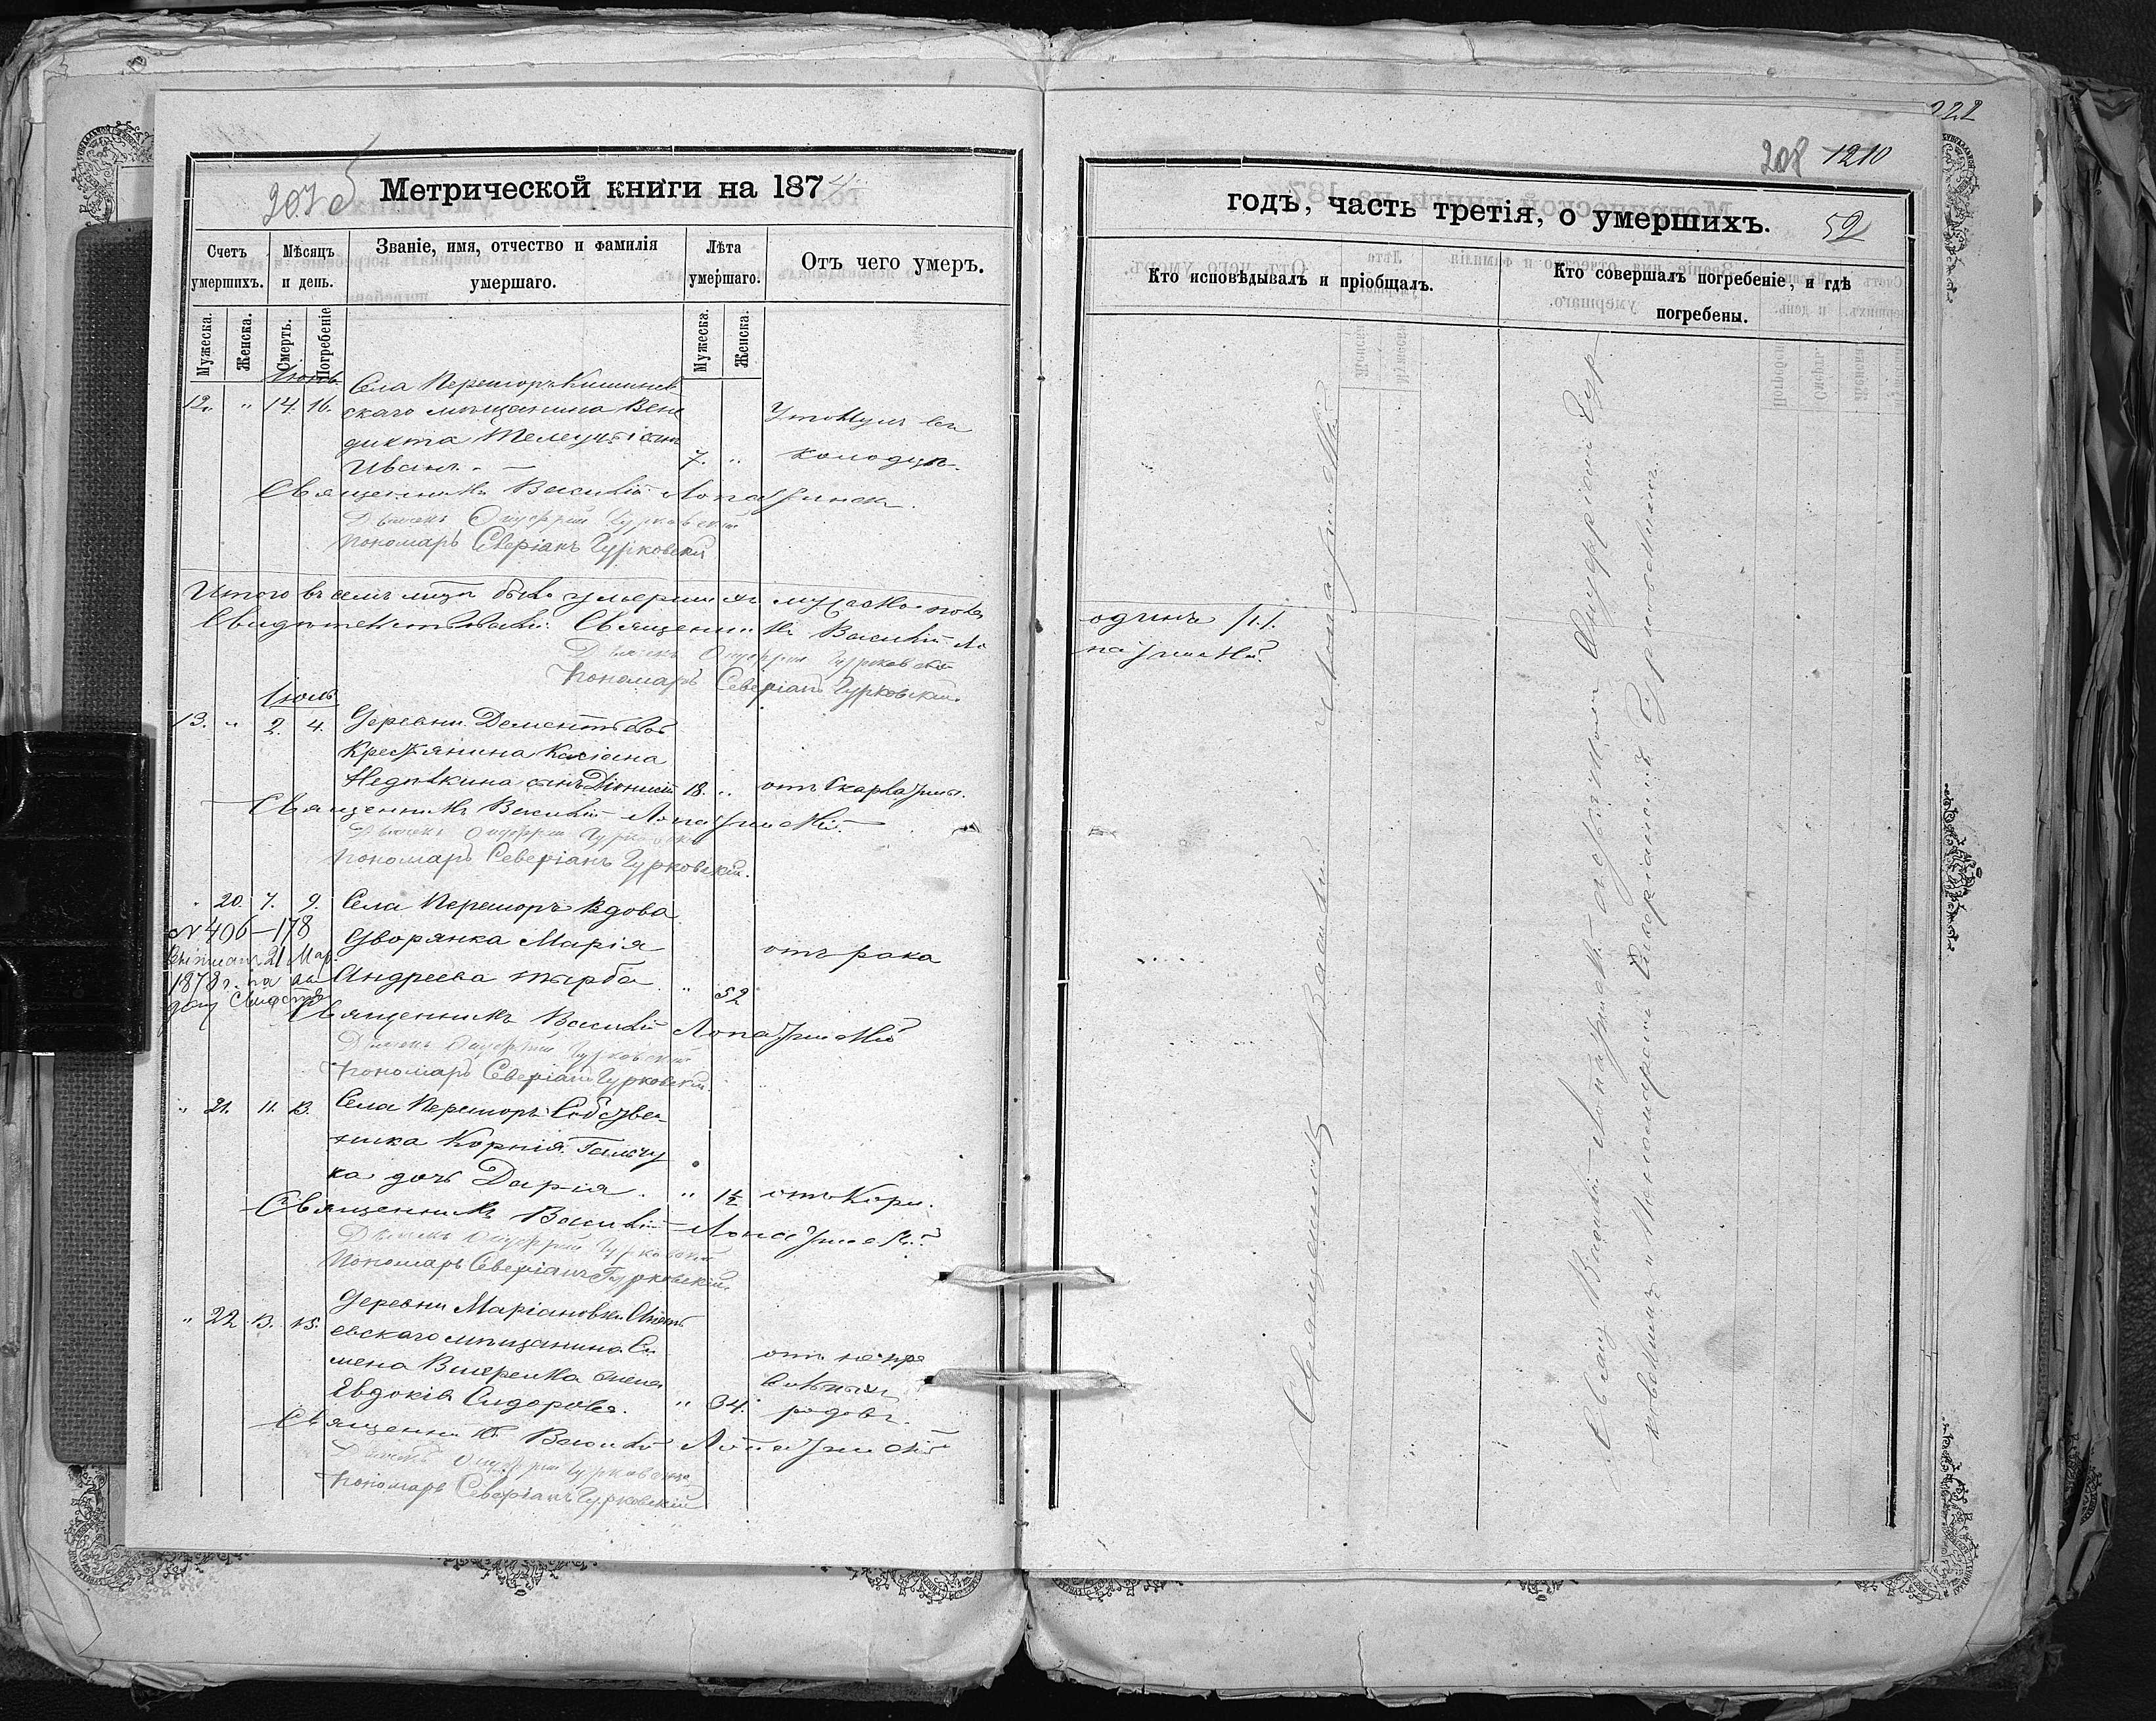 207 б
Метрической книги на 1874
Счетъ умершихъ.
Мѣсяцъ и день.
Званіе, имя, отчество и фамилія умершаго.
Лѣта умершаго.
Отъ чего умеръ.
Мужеска.
Женска.
Смерть.
Погребеніе
Мужеска.
Женска.
Июнь.
Села Переморъ Кишинев
12. " 14. 16. скаго мѣщанина Вене
дикта сынъ
Иванъ. 7. " Утонулъ въ
колодцѣ.
Священникъ Василій Лопатинскій.
Дьячекъ Онуфрій Гурковскій
Пономарь Северіанъ Гурковскій
Итого въ семъ было умершихъ мужеска пола
Свидѣтельствовали: Священникъ Василій Ло
Дьячекъ Онуфрій Гурковскій
Пономарь Северіанъ Гурковскій.
Июль
13. " 2. 4. Деревни
Крестьянина Касіана
сынъ Діонисій 18. " отъ скарлатины.
Священникъ Василій Лопатинскій.
Дьячекъ Онуфрій Гурковскій
Пономарь Северіанъ Гурковскій.
" 20. 7. 9. Села Переморъ Вдова
N 406-178
Дворянка Марія отъ рака
21 Мар.
1878 г.
Андреева " 52
Священникъ Василій Лопатинскій
Дьячекъ Онуфрій Гурковскій
Пономарь Северіанъ Гурковскій.
" 21. 11. 13. Села Переморъ Собстве-
ника Корнія
ка дочь Дарія. " 1½ отъ Кори.
Священникъ Василій Лопатинскій
Дьячекъ Онуфрій Гурковскій
Пономарь Северіанъ Гурковскій.
" 22 13. 15. Деревни Маріановки
евскаго мѣщанина Си
мена жена отъ непра
вильныхъ
Евдокія Сидорова. " 34. родовъ.
Священникъ Василій Лопатинскій
Дьячекъ Онуфрій Гурковскій
Пономарь Северіанъ Гурковскій
222
208 1210
годъ, часть третія, о умершихъ.
52
Кто исповѣдывалъ и пріобщалъ.
Кто совершалъ погребеніе, и гдѣ погребены.
одинъ /1./.
патинскій.
Священникъ Василій Лопатинскій.
Свящ. Василій Лопатинскій съ дьячкомъ Онуфріемъ Гур-
ковскимъ и Пономаремъ Северіаномъ Гурковскимъ.